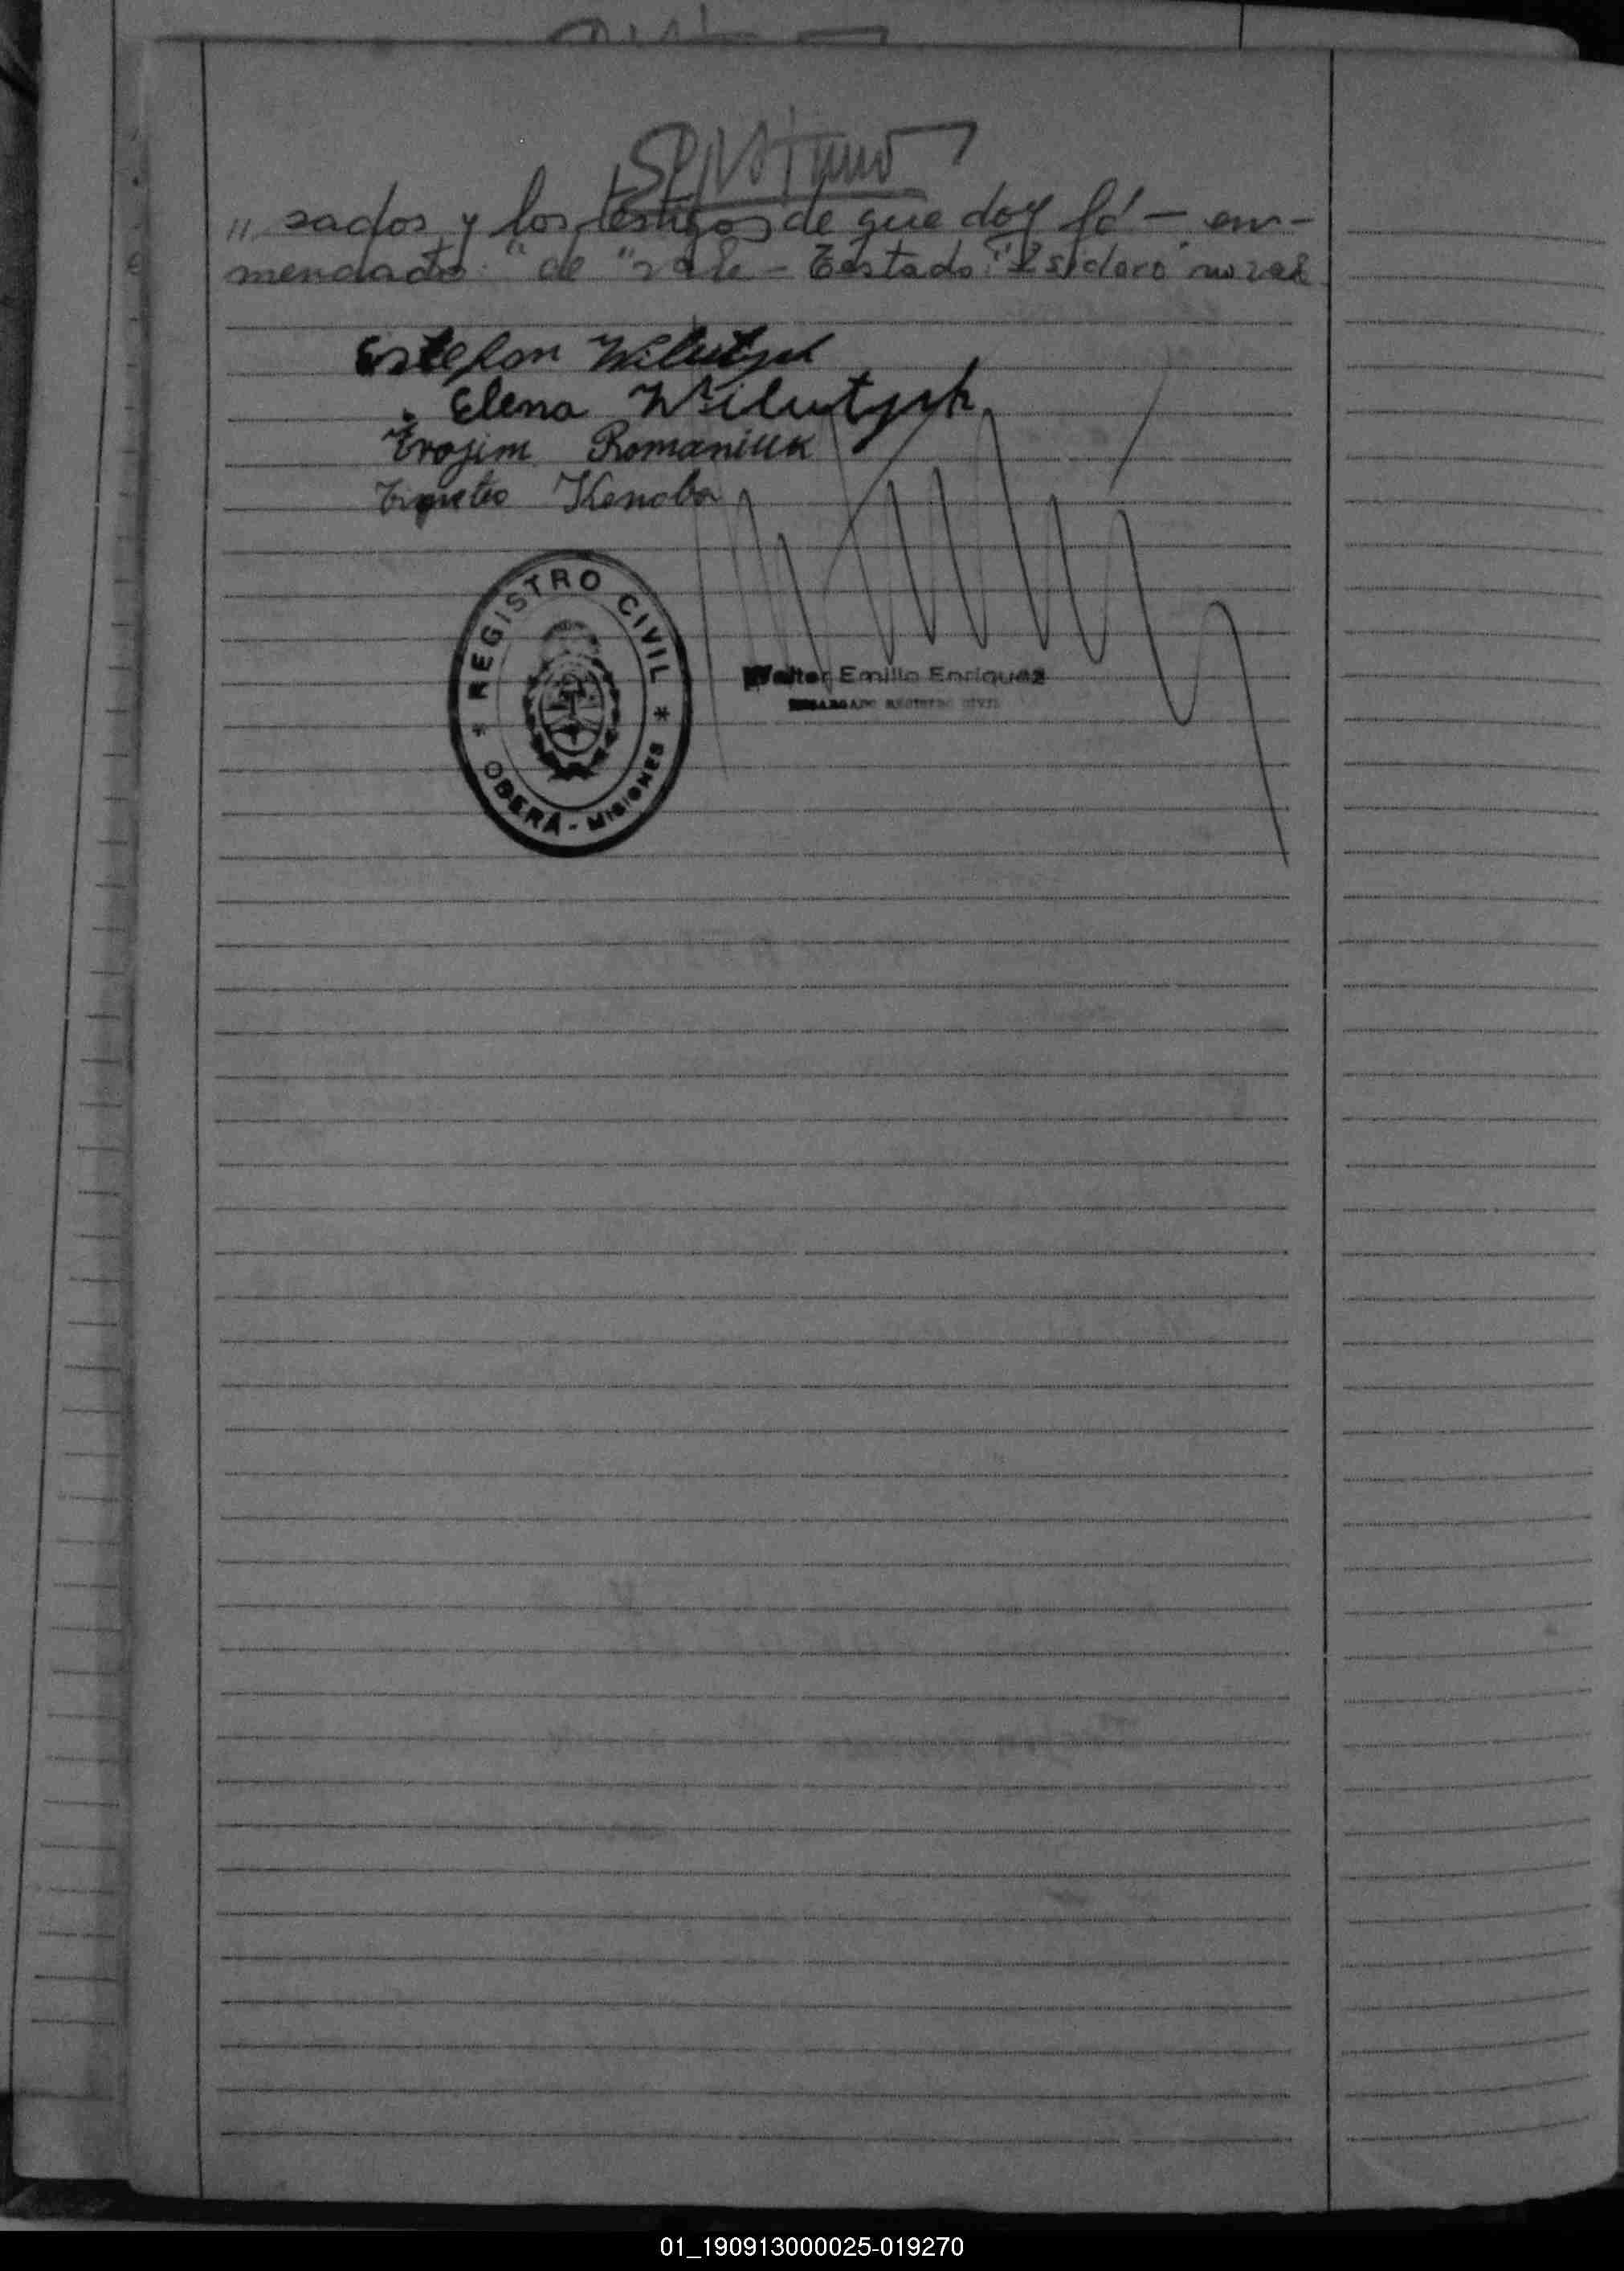 " sados y los testigos de que doy fé - en-
mendado: "de" vale - Testado: "Isidoro" no vale
Estefan Wilutzck
Elena Wilutzck
Trofim Romaniuk
Kenoba
REGISTRO CIVIL
* OBERÁ - MISIONES *
Walter Emilio Enriquez
ENCARGADO REGISTRO CIVIL
01_190913000025-019270